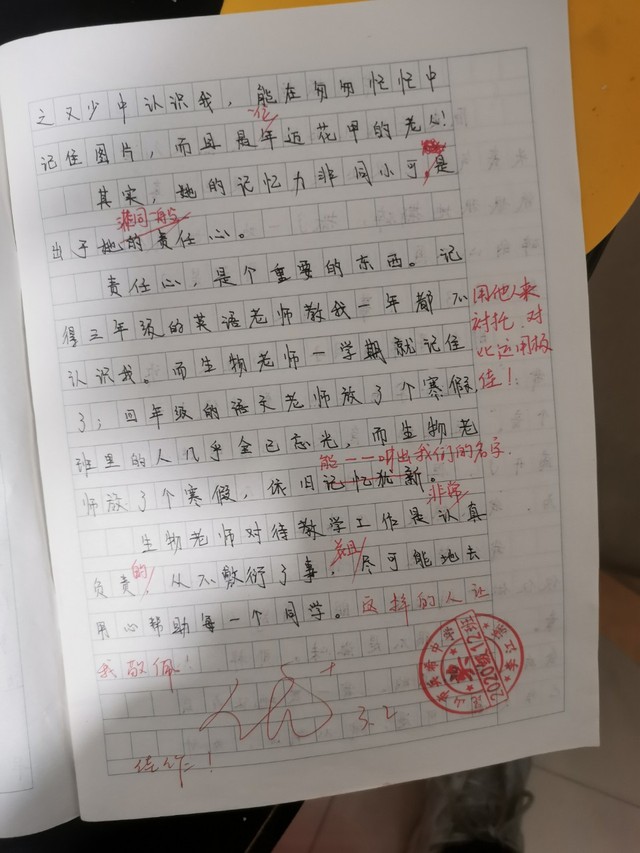 之又少中认识我，能在匆匆忙忙中
位
记住图片，而且是年近花甲的老人！
其实，她的记忆力非同小可，是
出于她的责任心。
责任心，是个重要的东西。记
得三年级的英语老师教我一年都不
用他人来
衬托，对
比运用极
佳！
认识我。而生物老师一学期就记住
了；四年级的语文老师放了个寒假，
班里的人几乎全已忘光，而生物老
能一一叫出我们的名字．
师放了个寒假，依旧记忆犹新。
非常
生物老师对待教学工作是认真
的
并且
负责，从不敷衍了事，尽可能地去
用心帮助每一个同学。这样的人让
我敬佩！
优+
3.2
佳作！